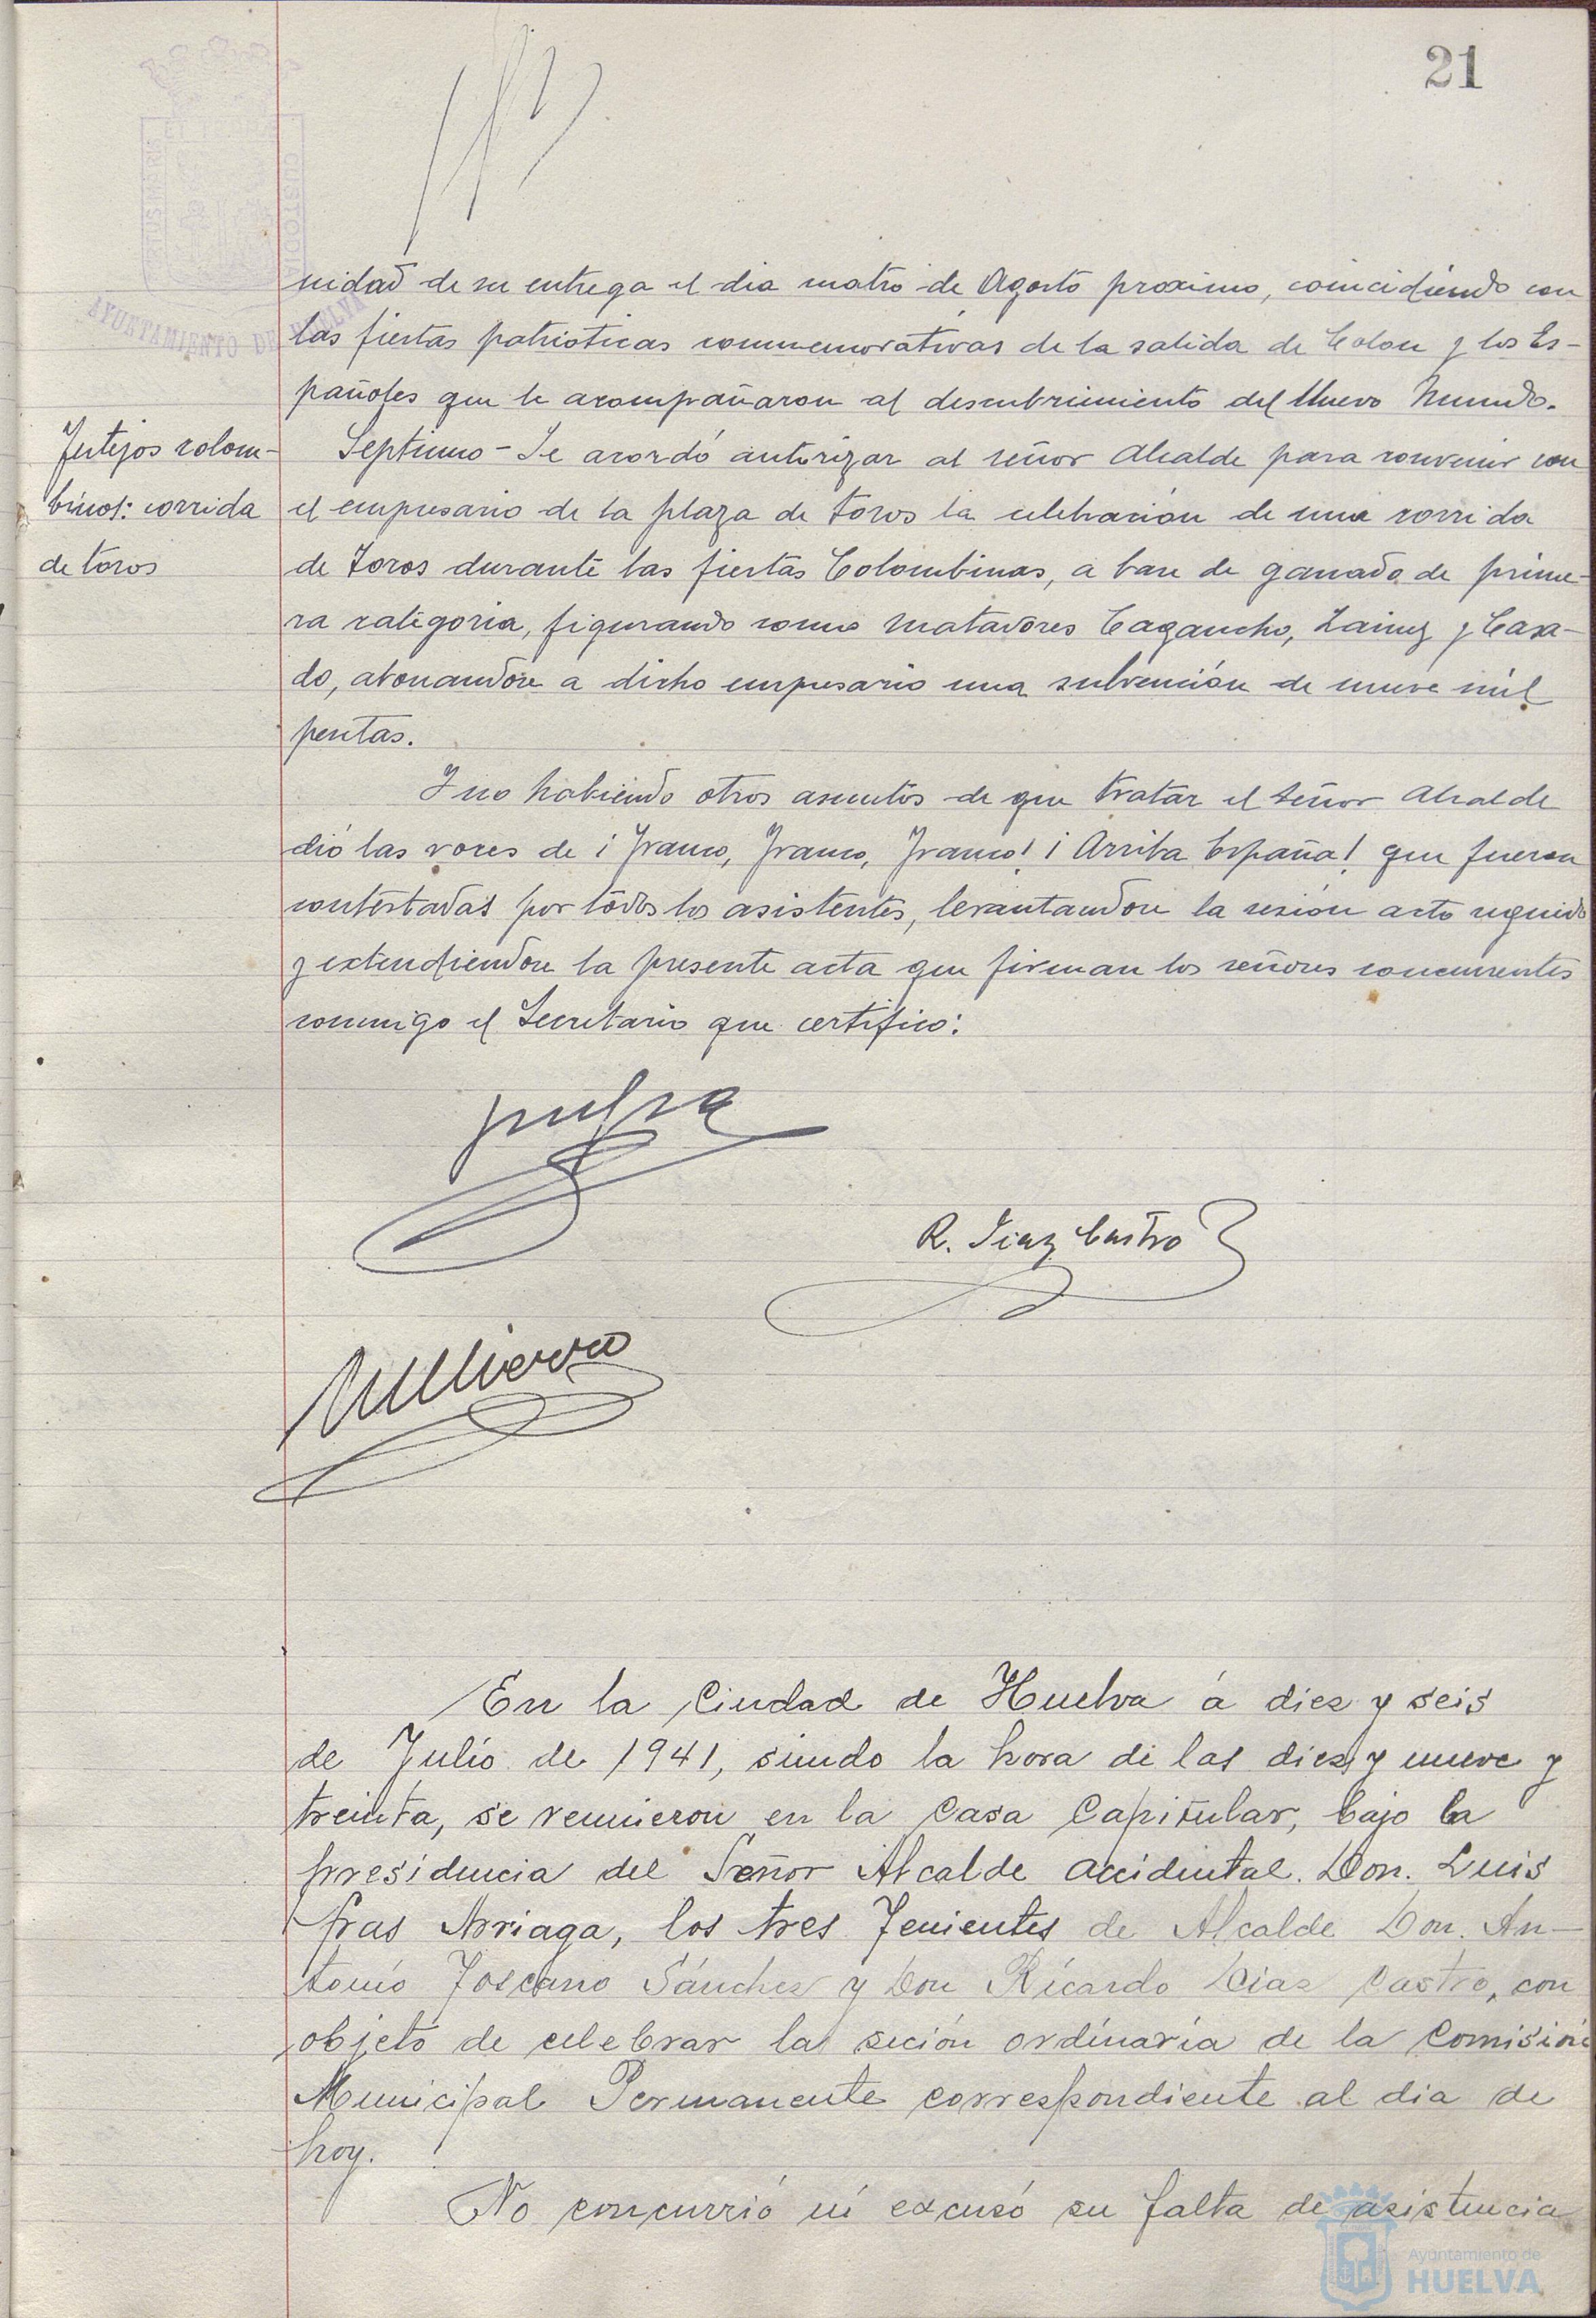 21
AYUNTAMIENTO DE HUELVA
nidad de su entrega el dia cuatro de Agosto proximo, coincidiendo con
las fiestas patrioticas conmemorativas de la salida de Colon y los Es-
pañoles que le acompañaron al descubrimiento del Nuevo Mundo.
Festejos colom-
binos: corrida
de toros
Septimo - Se acordó autorizar al señor Alcalde para convenir con
el empresario de la plaza de toros la celebración de una corrida
de toros durante las fiestas Colombinas, a base de ganado de prime-
ra categoria, figurando como matadores Cagancho, Lainez y Casa-
do, abonandose a dicho empresario una subvención de nueve mil
pesetas.
Y no habiendo otros asuntos de que tratar el señor Alcalde
dió las voces de ¡Franco, Franco, Franco! ¡Arriba España! que fueron
contestadas por todos los asistentes, levantandose la sesión acto seguido
y extendiendose la presente acta que firman los señores concurrentes
conmigo el Secretario que certifico:
R. Diaz Castro
En la Ciudad de Huelva á diez y seis
de Julio de 1941, siendo la hora de las diez y nueve y
treinta, se reunieron en la Casa Capitular, bajo la
presidencia del Señor Alcalde accidental. Don. Luis
Pras Arriaga, los tres Tenientes de Alcalde Don. An-
tonio Toscano Sánchez y Don Ricardo Diaz Castro, con
objeto de celebrar la seción ordinaria de la Comisión
Municipal Permanente correspondiente al dia de
hoy.
No concurrió ni excusó su falta de asistencia
Ayuntamiento de
HUELVA